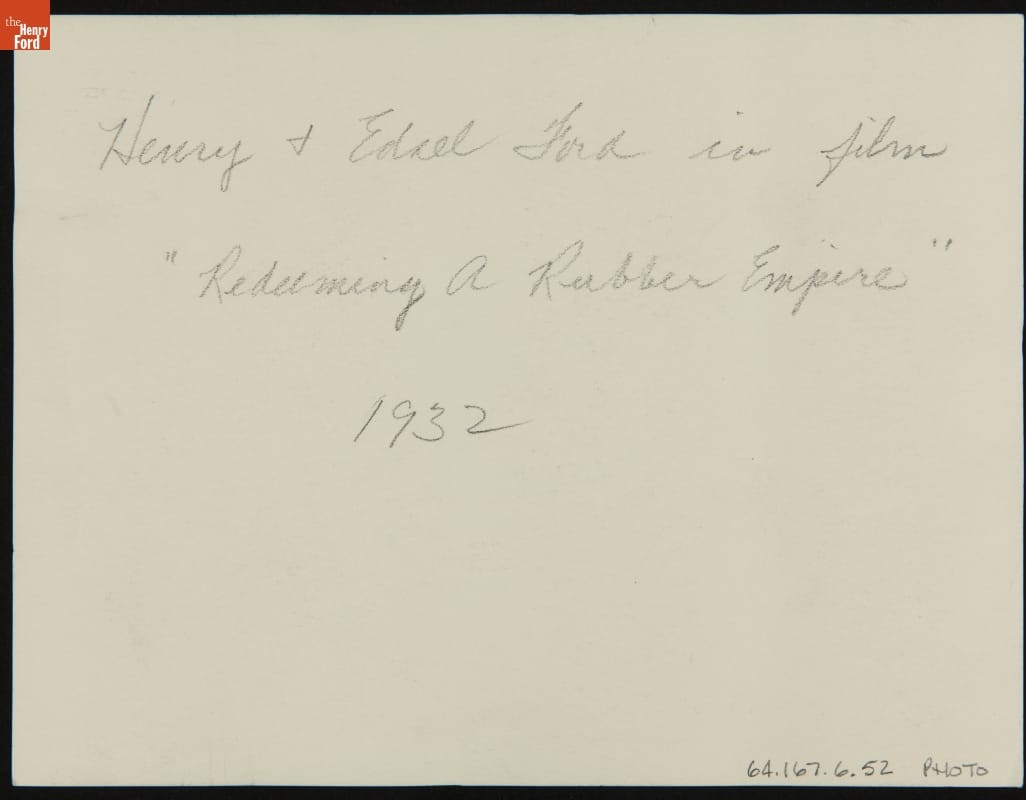 the Henry Ford
Henry + Edsel Ford in film
" Redeeming A Rubber Empire "
1932
64.167.6.52 PHOTO